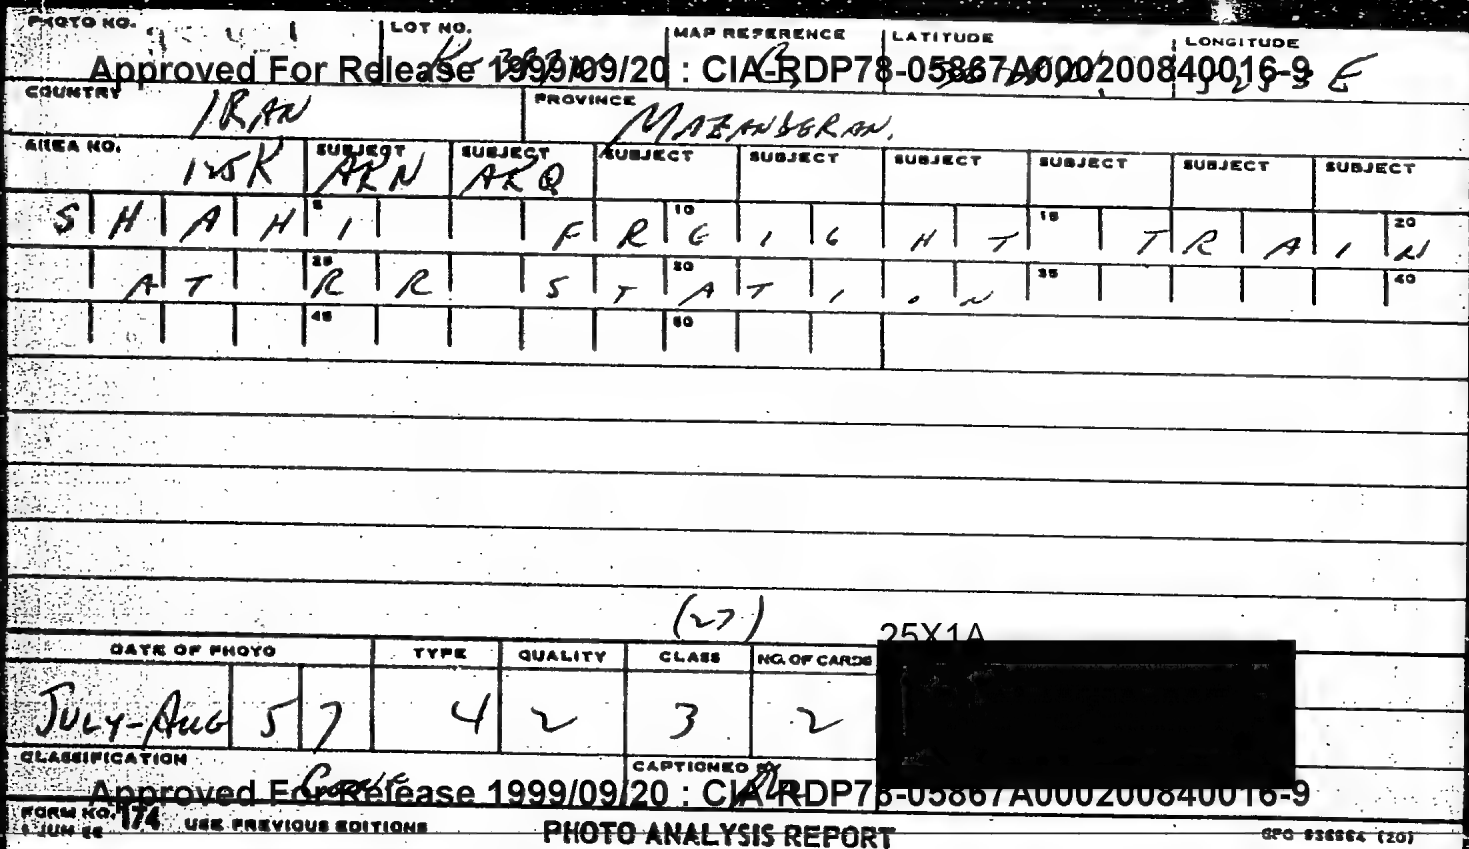 PHOTO NO. LOT NO. MAP REFERENCE LATITUDE LONGITUDE
Approved For Release 1999/09/20 : CIA-RDP78-05867A000200840016-9
COUNTRY IRAN PROVINCE MAZANDERAN.
AREA NO. 125K SUBJECT ARN SUBJECT ARQ SUBJECT SUBJECT SUBJECT SUBJECT SUBJECT SUBJECT
5 10 15 20
SHAHI FREIGHT TRAIN
25 30 35 40
AT RR STATION
45 50
(27)
25X1A
DATE OF PHOTO TYPE QUALITY CLASS NO. OF CARDS
JULY-AUG 57 4 2 3 2
CLASSIFICATION CAPTIONED BY
Approved For Release 1999/09/20 : CIA-RDP78-05867A000200840016-9
FORM NO. 174 USE PREVIOUS EDITIONS PHOTO ANALYSIS REPORT GPO 936564 (20)
1 JUN 56